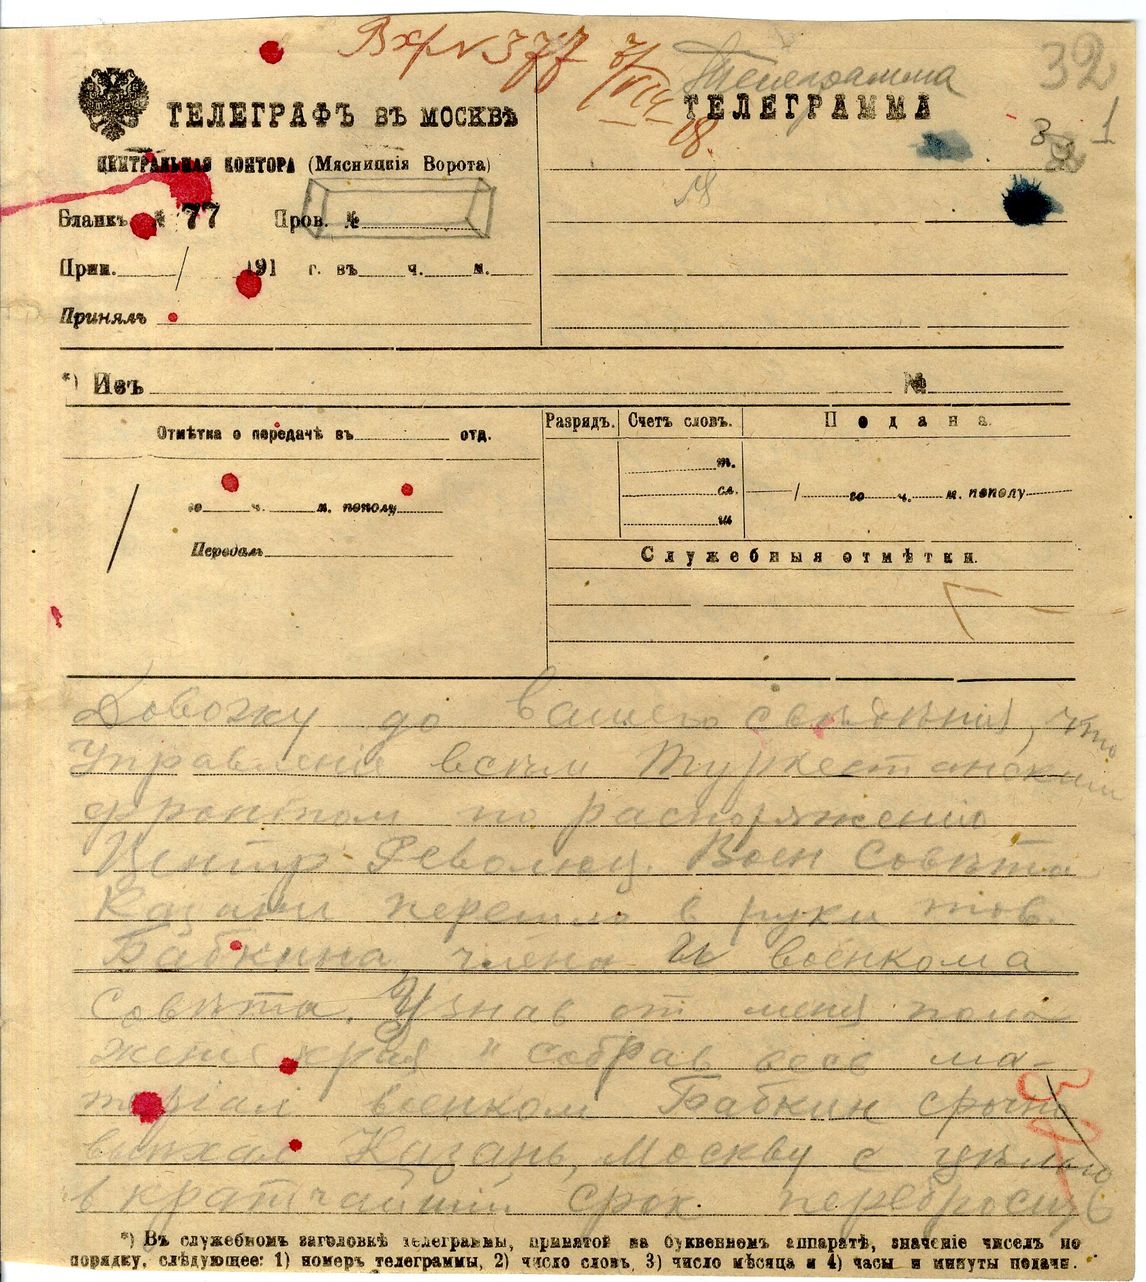 Вх № 377 7/VIII 18.
Телеграмма
32
ТЕЛЕГРАФЪ ВЪ МОСКВѢ
ТЕЛЕГРАММА
3
1
ЦЕНТРАЛЬНАЯ КОНТОРА (Мясницкія Ворота)
Бланкъ № 77 Пров. №
Прин. / 191 г. въ ч. м.
Принялъ
*) Изъ №
Отмѣтка о передачѣ въ отд.
Разрядъ. Счетъ словъ. Подана.
т.
сл. / го ч. м. пополу
ш
го ч. м. пополу
Передалъ
Служебныя отмѣтки.
Довожу до вашего свѣдѣнія, что
Управленіе всѣм Туркестанским
фронтом по распоряженію
Центр. Революц. Воен Совѣта
Казани перешло в руки тов.
Бабкина, члена и военкома
Совѣта. Узнав от меня поло
жение края и собрав весь ма-
теріал военком Бабкин срочно
выѣхал Казань, Москву с цѣлью
в кратчайший срок перебросить
*) Въ служебномъ заголовкѣ телеграммы, принятой на буквенномъ аппаратѣ, значеніе чиселъ по
порядку, слѣдующее: 1) номеръ телеграммы, 2) число словъ, 3) число мѣсяца и 4) часы и минуты подачи.